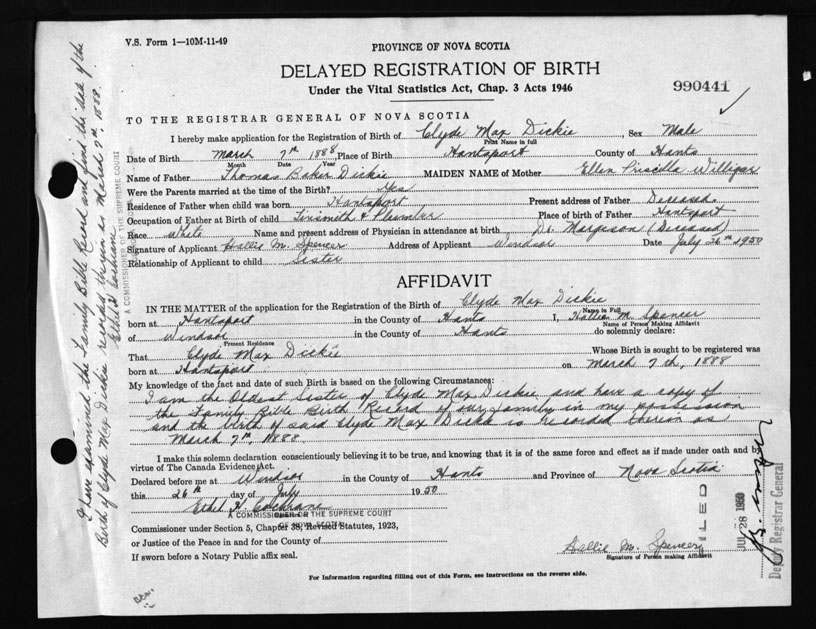 V.S. Form 1—10M-11-49
PROVINCE OF NOVA SCOTIA
DELAYED REGISTRATION OF BIRTH
Under the Vital Statistics Act, Chap. 3 Acts 1946
990441
TO THE REGISTRAR GENERAL OF NOVA SCOTIA
I hereby make application for the Registration of Birth of Clyde Max Dickie, Sex Male
Print Name in full
Date of Birth March 7th 1888 Place of Birth Hantsport County of Hants
Month Date Year
Name of Father Thomas Baker Dickie MAIDEN NAME of Mother Ellen Priscilla Willigar
Were the Parents married at the time of the Birth? Yes
Residence of Father when child was born Hantsport Present address of Father Deceased
Occupation of Father at Birth of child Tinsmith & Plumber Place of birth of Father Hantsport
Race White Name and present address of Physician in attendance at birth Dr. Margeson (Deceased)
Signature of Applicant Hallie M. Spencer Address of Applicant Windsor Date July 26th 1950
Relationship of Applicant to child Sister
AFFIDAVIT
IN THE MATTER of the application for the Registration of the Birth of Clyde Max Dickie
Name in Full
born at Hantsport in the County of Hants I, Hallie M. Spencer
Name of Person Making Affidavit
of Windsor in the County of Hants do solemnly declare:
Present Residence
That Clyde Max Dickie Whose Birth is sought to be registered was
born at Hantsport on March 7th, 1888
My knowledge of the fact and date of such Birth is based on the following Circumstances:
I am the Oldest Sister of Clyde Max Dickie and have a copy of
the Family Bible Birth Record of our family in my possession
and the birth of said Clyde Max Dickie is recorded thereon as
March 7th, 1888
I make this solemn declaration conscientiously believing it to be true, and knowing that it is of the same force and effect as if made under oath and by
virtue of The Canada Evidence Act.
Declared before me at Windsor in the County of Hants and Province of Nova Scotia
this 26th day of July 1950
Ethel H. Cochrane
A COMMISSIONER OF THE SUPREME COURT
OF NOVA SCOTIA
Commissioner under Section 5, Chapter 38, Revised Statutes, 1923,
or Justice of the Peace in and for the County of
If sworn before a Notary Public affix seal.
Hallie M. Spencer
Signature of Person making Affidavit
For Information regarding filling out of this Form, see Instructions on the reverse side.
I have examined the Family Bible Record and find the date of the
Birth of Clyde Max Dickie recorded therein as March 7th, 1888.
Ethel H. Cochrane
A COMMISSIONER OF THE SUPREME COURT
FILED
JUL 28 1950
Deputy Registrar General